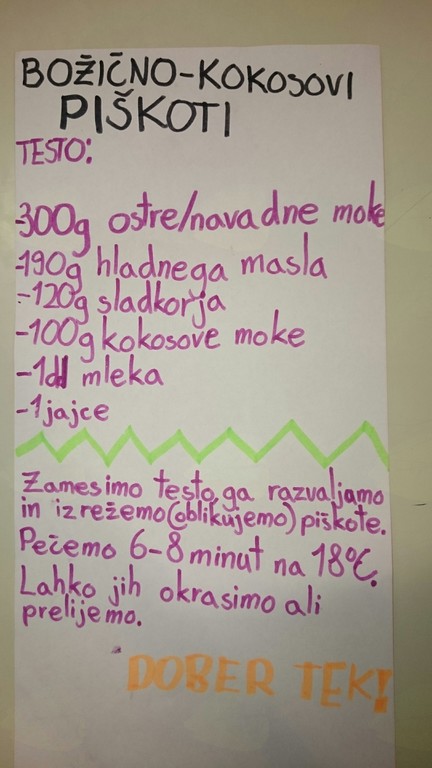 BOŽIČNO-KOKOSOVI
PIŠKOTI
TESTO:
-300g ostre/navadne moke
-190g hladnega masla
-120g sladkorja
-100g kokosove moke
-1dl mleka
-1jajce
Zamesimo testo, ga razvaljamo
in izrežemo(oblikujemo) piškote.
Pečemo 6-8 minut na 18°C.
Lahko jih okrasimo ali
prelijemo.
DOBER TEK!